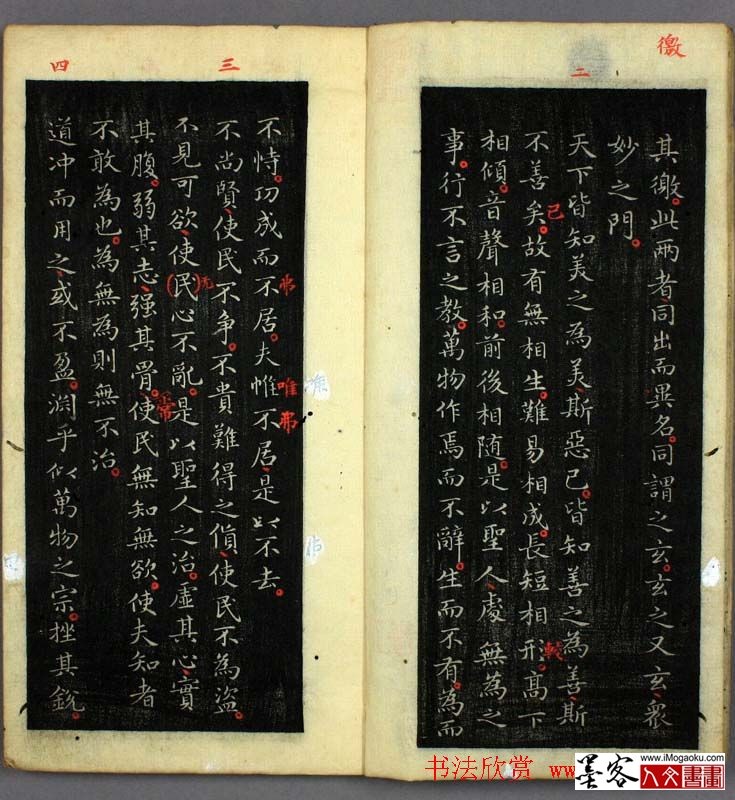 徼
二
其徼。此兩者、同出而異名。同謂之玄。玄之又玄、衆
妙之門。
天下皆知美之為美、斯惡已。皆知善之為善斯
不善矣。故有無相生。難易相成。長短相形。高下
已
較
相傾。音聲相和。前後相隨。是以聖人處無為之
事。行不言之教。萬物作焉而不辭。生而不有。為而
三
四
不恃。功成而不居。夫惟不居、是以不去。
弗
唯
弗
不尚賢、使民不争。不貴難得之貨、使民不為盜。
不見可欲、使(民)心不亂。是以聖人之治。虛其心、實
无
其腹。弱其志、强其骨。使民無知無欲。使夫知者
常
不敢為也。為無為則無不治。
道冲而用之、或不盈。淵乎似萬物之宗。挫其銳。
书法欣赏 www
墨客
www.iMogaoku.com
人文書畫